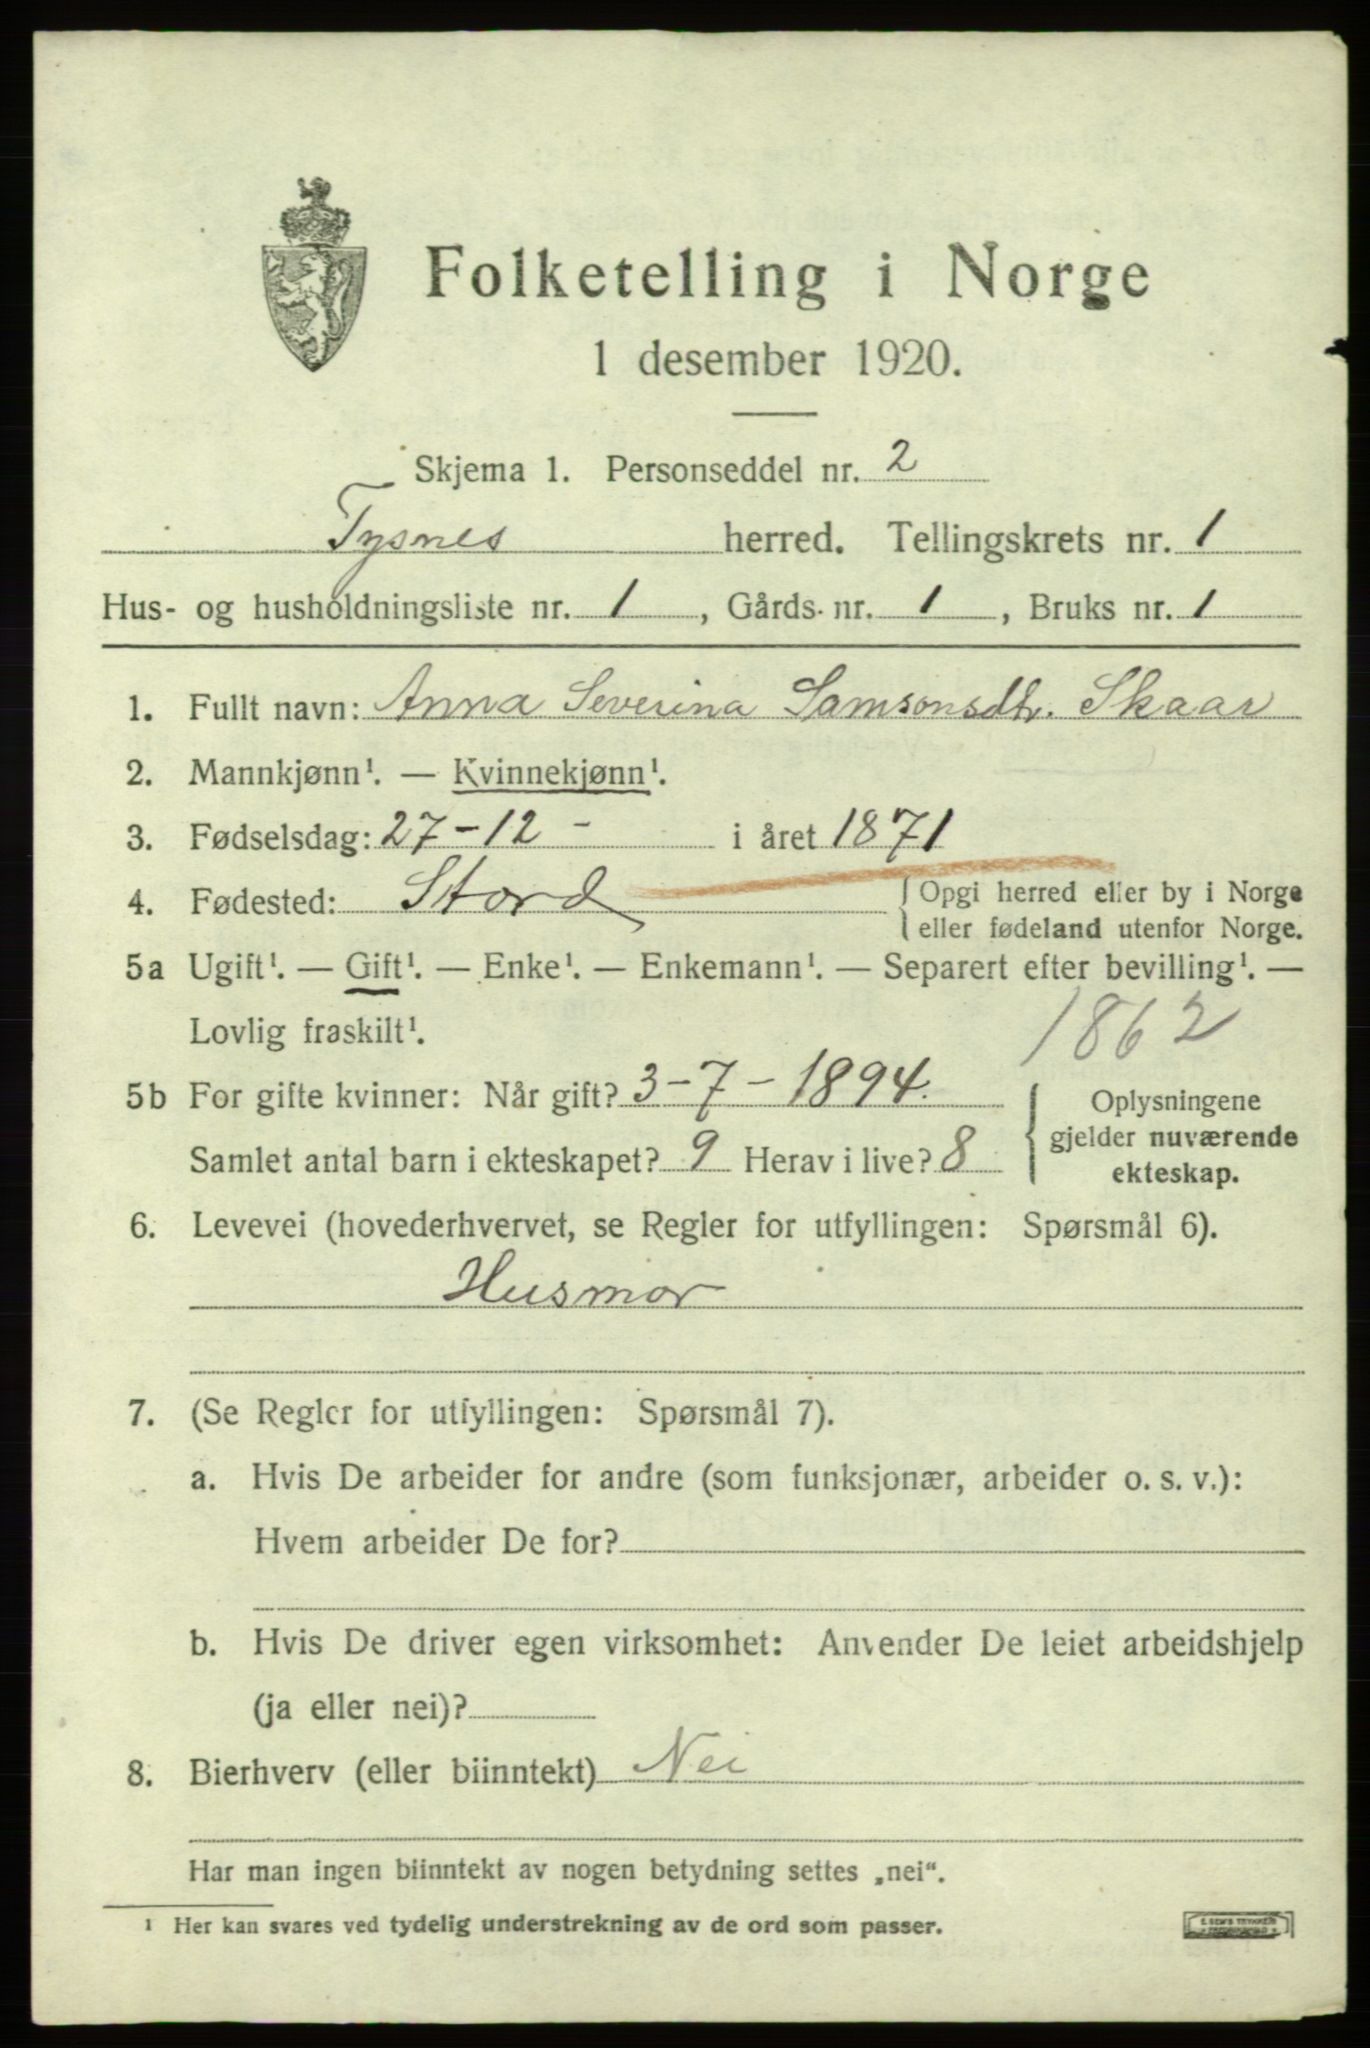 Folketelling i Norge
1 desember 1920.
Skjema 1. Personseddel nr. 2
Tysnes herred. Tellingskrets nr. 1
Hus- og husholdningsliste nr. 1, Gårds- nr. 1, Bruks nr. 1
1. Fullt navn: Anna Severina Samsonsdtr. Skaar
2. Mannkjønn¹. — Kvinnekjønn¹.
3. Fødselsdag: 27-12- i året 1871
4. Fødested: Stord { Opgi herred eller by i Norge
eller fødeland utenfor Norge.
5a Ugift¹. — Gift¹. — Enke¹. — Enkemann¹. — Separert efter bevilling¹. —
Lovlig fraskilt¹. 1862
5b For gifte kvinner: Når gift? 3-7-1894.
Samlet antal barn i ekteskapet? 9 Herav i live? 8
{ Oplysningene
gjelder nuværende
ekteskap.
6. Levevei (hovederhvervet, se Regler for utfyllingen: Spørsmål 6).
Husmor
7. (Se Regler for utfyllingen: Spørsmål 7).
a. Hvis De arbeider for andre (som funksjonær, arbeider o. s. v.):
Hvem arbeider De for?
b. Hvis De driver egen virksomhet: Anvender De leiet arbeidshjelp
(ja eller nei)?
8. Bierhverv (eller biinntekt) Nei
Har man ingen biinntekt av nogen betydning settes „nei“.
¹ Her kan svares ved tydelig understrekning av de ord som passer.